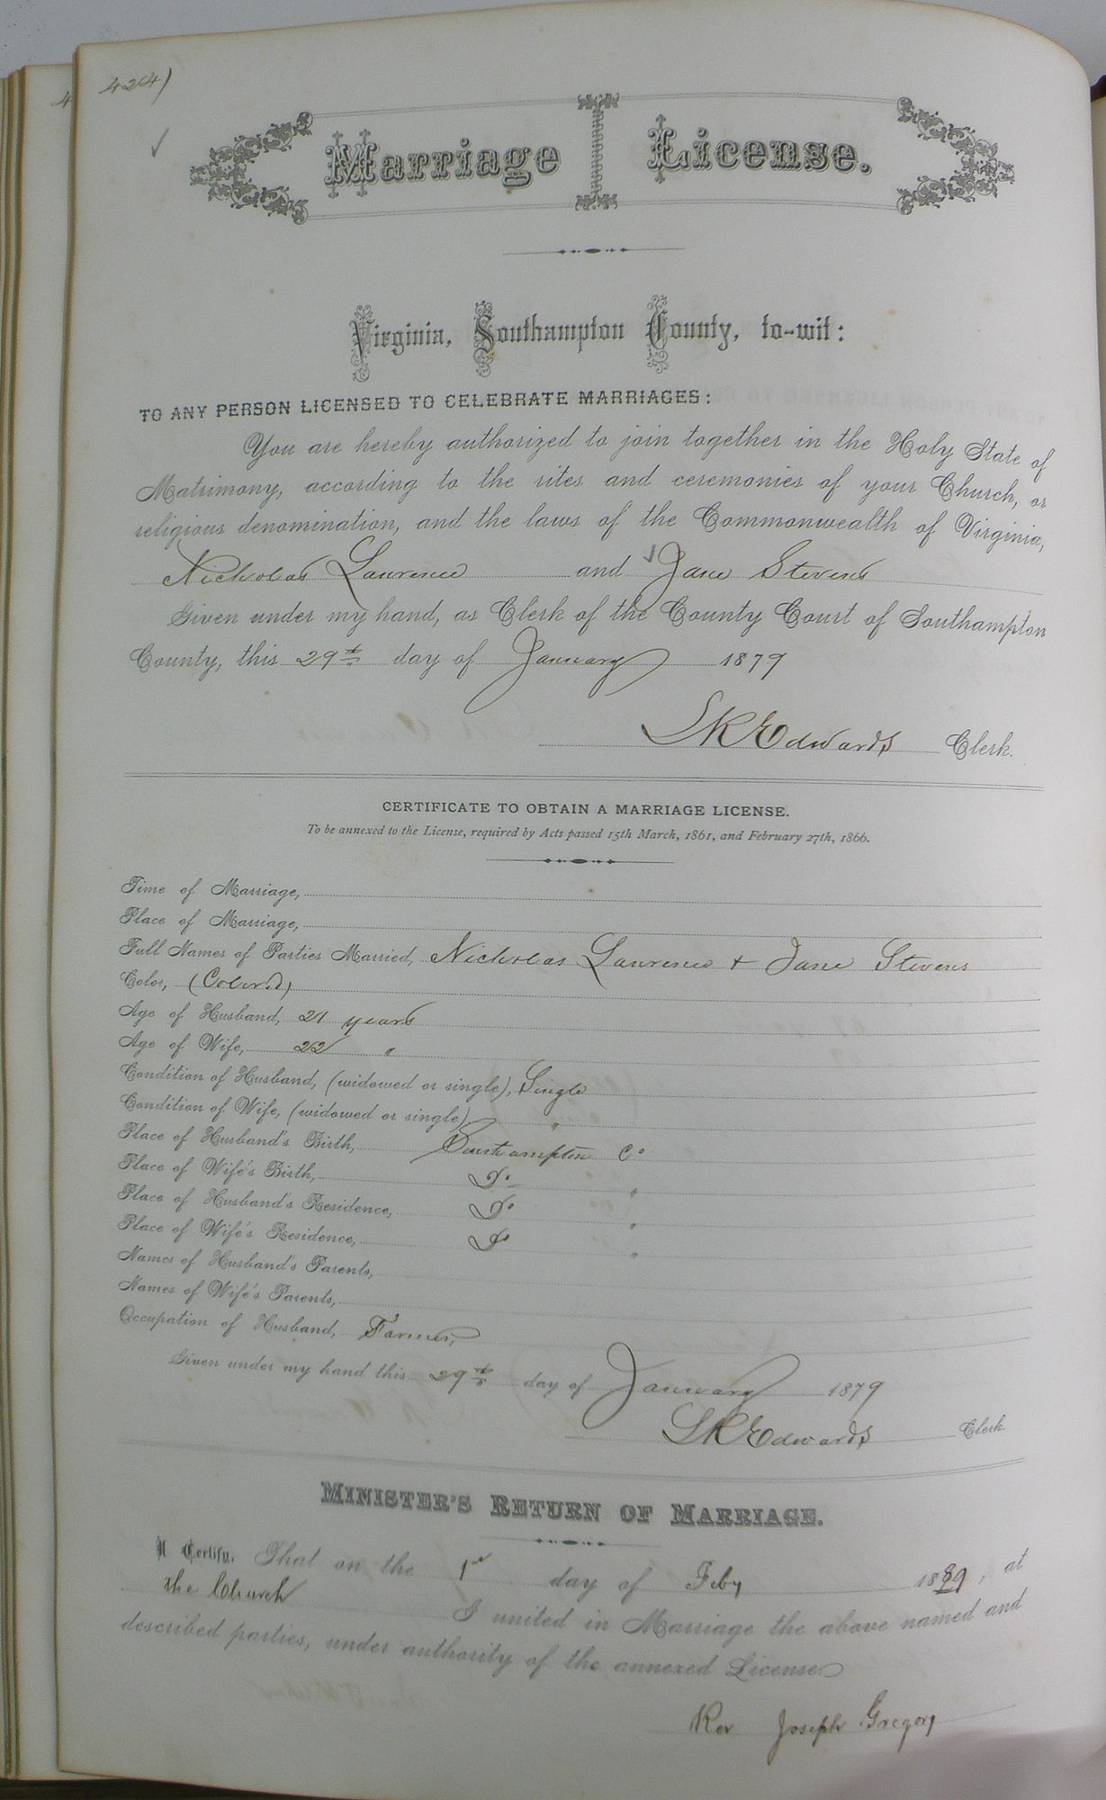 424)
Marriage License.
Virginia, Southampton County, to-wit:
TO ANY PERSON LICENSED TO CELEBRATE MARRIAGES:
You are hereby authorized to join together in the Holy State of
Matrimony, according to the rites and ceremonies of your Church, or
religious denomination, and the laws of the Commonwealth of Virginia,
Nicholas Lawrence and Jane Stevens
Given under my hand, as Clerk of the County Court of Southampton
County, this 29th day of January 1879
L R Edwards Clerk.
CERTIFICATE TO OBTAIN A MARRIAGE LICENSE.
To be annexed to the License, required by Acts passed 15th March, 1861, and February 27th, 1866.
Time of Marriage,
Place of Marriage,
Full Names of Parties Married, Nicholas Lawrence + Jane Stevens
Color, (Colored)
Age of Husband, 21 years
Age of Wife, 22 "
Condition of Husband, (widowed or single), Single
Condition of Wife, (widowed or single) "
Place of Husband's Birth, Southampton Co
Place of Wife's Birth, Do "
Place of Husband's Residence, Do "
Place of Wife's Residence, Do "
Names of Husband's Parents,
Names of Wife's Parents,
Occupation of Husband, Farmer,
Given under my hand this 29th day of January 1879
L R Edwards Clerk
MINISTER'S RETURN OF MARRIAGE.
I Certify, That on the 1st day of Feby 1879, at
the Church I united in Marriage the above named and
described parties, under authority of the annexed License
Rev Joseph Gregory